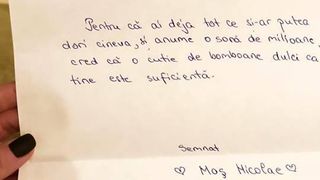 Pentru că ai deja tot ce si-ar putea
dori cineva, și anume o soră de milioane,
cred că o cutie de bomboane dulci ca
tine este suficientă.
Semnat
♡ Moș Nicolae ♡